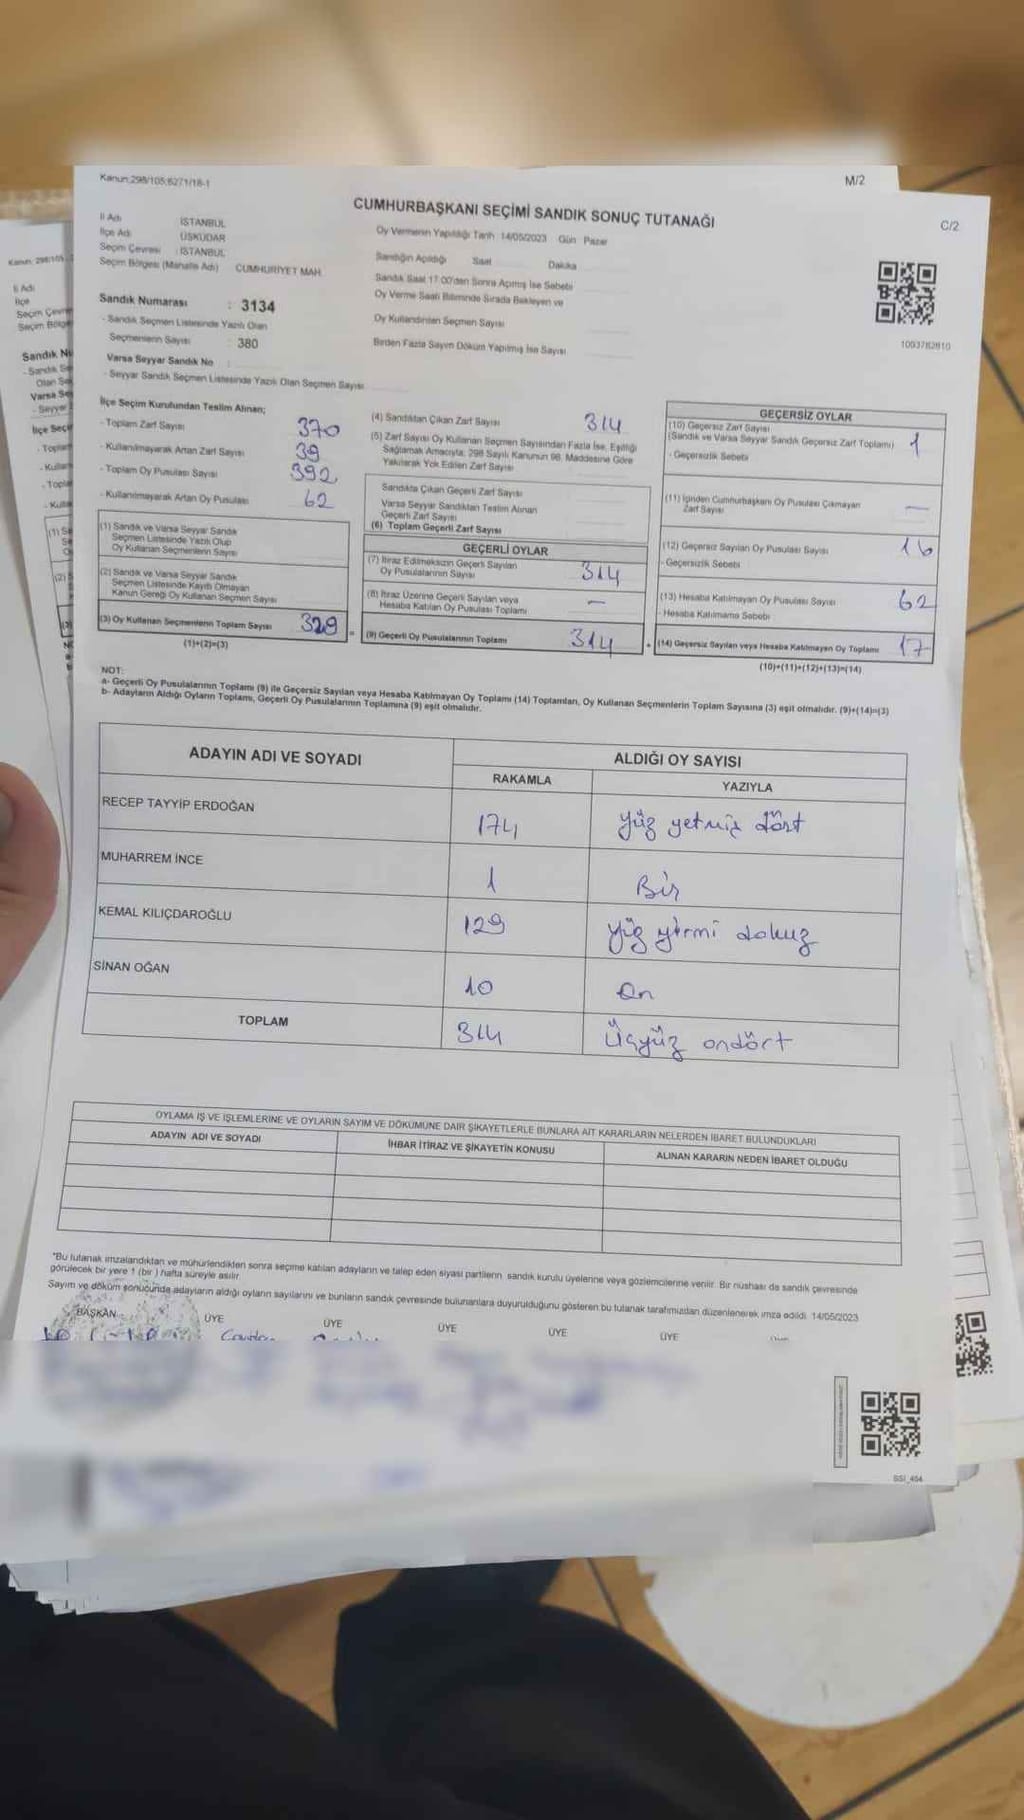 Kanun;298/105;6271/18-1
M/2
CUMHURBAŞKANI SEÇİMİ SANDIK SONUÇ TUTANAĞI
C/2
İl Adı İSTANBUL
İlçe Adı ÜSKÜDAR
Seçim Çevresi : İSTANBUL
Seçim Bölgesi (Mahalle Adı) CUMHURİYET MAH.
Oy Vermenin Yapıldığı Tarih 14/05/2023 Gün Pazar
Sandığın Açıldığı Saat Dakika
Sandık Saat 17:00'den Sonra Açılmış İse Sebebi
Oy Verme Saati Bitiminde Sırada Bekleyen ve
Oy Kullandırılan Seçmen Sayısı
Birden Fazla Sayım Döküm Yapılmış İse Sayısı
1003782810
Sandık Numarası : 3134
- Sandık Seçmen Listesinde Yazılı Olan
Seçmenlerin Sayısı : 380
Varsa Seyyar Sandık No :
- Seyyar Sandık Seçmen Listesinde Yazılı Olan Seçmen Sayısı
İlçe Seçim Kurulundan Teslim Alınan;
- Toplam Zarf Sayısı 370
- Kullanılmayarak Artan Zarf Sayısı 39
- Toplam Oy Pusulası Sayısı 392
- Kullanılmayarak Artan Oy Pusulası 62
(1) Sandık ve Varsa Seyyar Sandık
Seçmen Listesinde Yazılı Olup
Oy Kullanan Seçmenlerin Sayısı
(2) Sandık ve Varsa Seyyar Sandık
Seçmen Listesinde Kayıtlı Olmayan
Kanun Gereği Oy Kullanan Seçmen Sayısı
(3) Oy Kullanan Seçmenlerin Toplam Sayısı 329
(1)+(2)=(3)
(4) Sandıktan Çıkan Zarf Sayısı 314
(5) Zarf Sayısı Oy Kullanan Seçmen Sayısından Fazla İse, Eşitliği
Sağlamak Amacıyla, 298 Sayılı Kanunun 98. Maddesine Göre
Yakılarak Yok Edilen Zarf Sayısı
Sandıkta Çıkan Geçerli Zarf Sayısı
Varsa Seyyar Sandıktan Teslim Alınan
Geçerli Zarf Sayısı
(6) Toplam Geçerli Zarf Sayısı
GEÇERLİ OYLAR
(7) İtiraz Edilmeksizin Geçerli Sayılan
Oy Pusulalarının Sayısı 314
(8) İtiraz Üzerine Geçerli Sayılan veya
Hesaba Katılan Oy Pusulası Toplamı –
= (9) Geçerli Oy Pusulalarının Toplamı 314
GEÇERSİZ OYLAR
(10) Geçersiz Zarf Sayısı 1
(Sandık ve Varsa Seyyar Sandık Geçersiz Zarf Toplamı)
- Geçersizlik Sebebi
(11) İçinden Cumhurbaşkanı Oy Pusulası Çıkmayan
Zarf Sayısı –
(12) Geçersiz Sayılan Oy Pusulası Sayısı 16
- Geçersizlik Sebebi
(13) Hesaba Katılmayan Oy Pusulası Sayısı 62
- Hesaba Katılmama Sebebi
+ (14) Geçersiz Sayılan veya Hesaba Katılmayan Oy Toplamı 17
(10)+(11)+(12)+(13)=(14)
NOT:
a- Geçerli Oy Pusulalarının Toplamı (9) ile Geçersiz Sayılan veya Hesaba Katılmayan Oy Toplamı (14) Toplamları, Oy Kullanan Seçmenlerin Toplam Sayısına (3) eşit olmalıdır. (9)+(14)=(3)
b- Adayların Aldığı Oyların Toplamı, Geçerli Oy Pusulalarının Toplamına (9) eşit olmalıdır.
ADAYIN ADI VE SOYADI
ALDIĞI OY SAYISI
RAKAMLA YAZIYLA
RECEP TAYYİP ERDOĞAN 174 Yüz yetmiş dört
MUHARREM İNCE 1 Bir
KEMAL KILIÇDAROĞLU 129 Yüz yirmi dokuz
SİNAN OĞAN 10 On
TOPLAM 314 Üçyüz ondört
OYLAMA İŞ VE İŞLEMLERİNE VE OYLARIN SAYIM VE DÖKÜMÜNE DAİR ŞİKAYETLERLE BUNLARA AİT KARARLARIN NELERDEN İBARET BULUNDUKLARI
ADAYIN ADI VE SOYADI İHBAR İTİRAZ VE ŞİKAYETİN KONUSU ALINAN KARARIN NEDEN İBARET OLDUĞU
"Bu tutanak imzalandıktan ve mühürlendikten sonra seçime katılan adayların ve talep eden siyasi partilerin sandık kurulu üyelerine veya gözlemcilerine verilir. Bir nüshası da sandık çevresinde
görülecek bir yere 1 (bir) hafta süreyle asılır.
Sayım ve döküm sonucunda adayların aldığı oyların sayılarını ve bunların sandık çevresinde bulunanlara duyurulduğunu gösteren bu tutanak tarafımızdan düzenlenerek imza edildi. 14/05/2023
BAŞKAN ÜYE ÜYE ÜYE ÜYE ÜYE
SSI_404